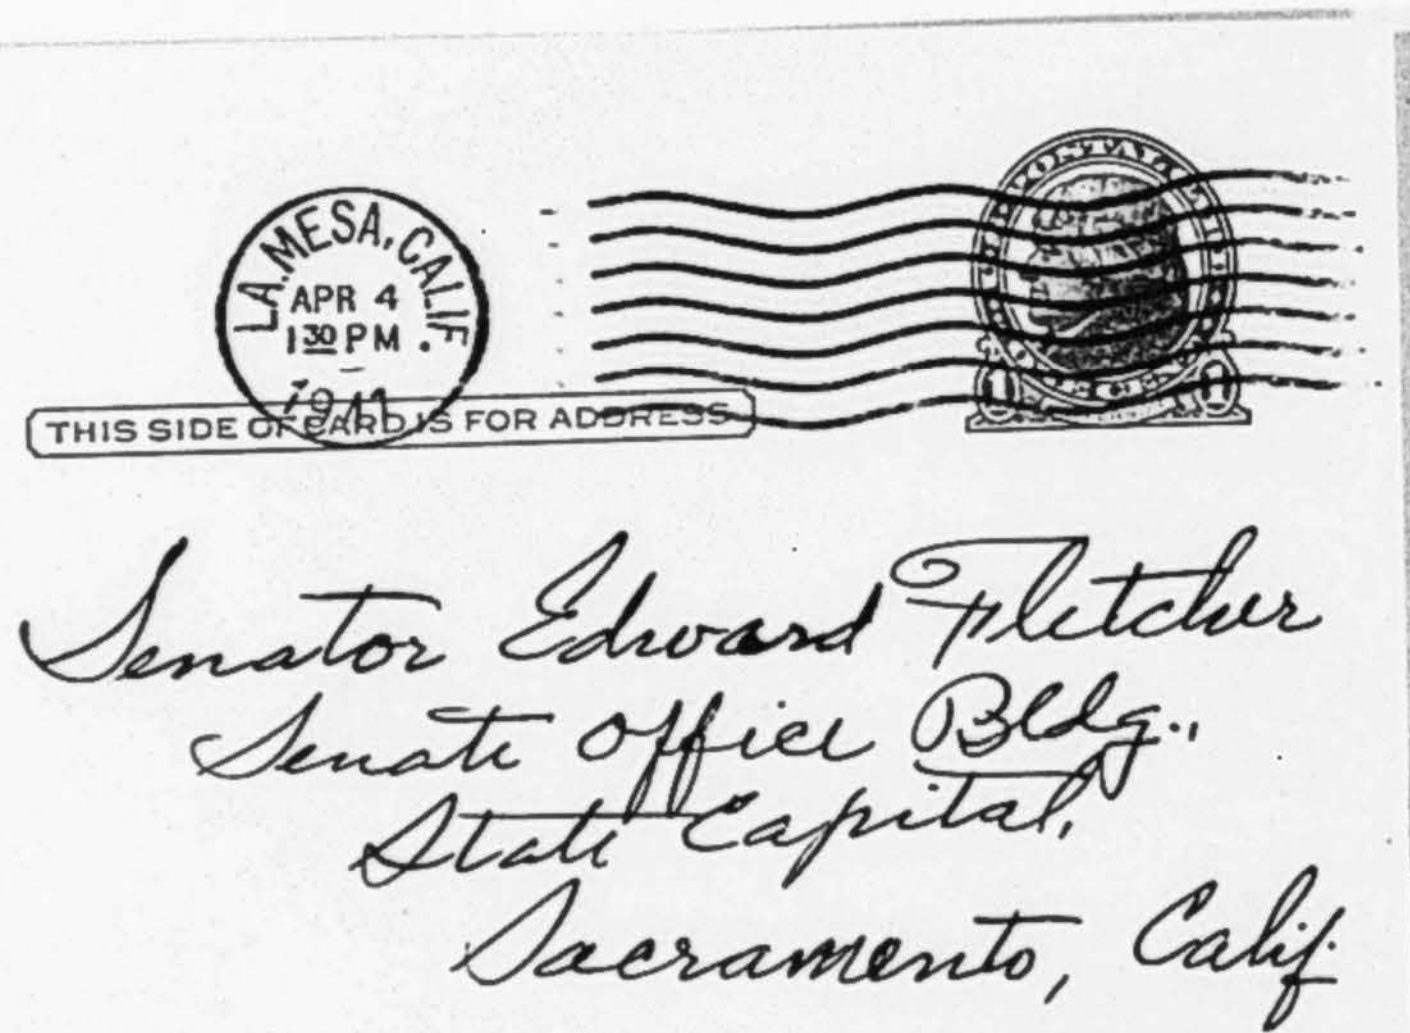 LA MESA, CALIF.
APR 4
1 30 PM
1941
THIS SIDE OF CARD IS FOR ADDRESS
POSTAL
1 1
Senator Edward Fletcher
Senate Office Bldg.,
State Capital,
Sacramento, Calif.